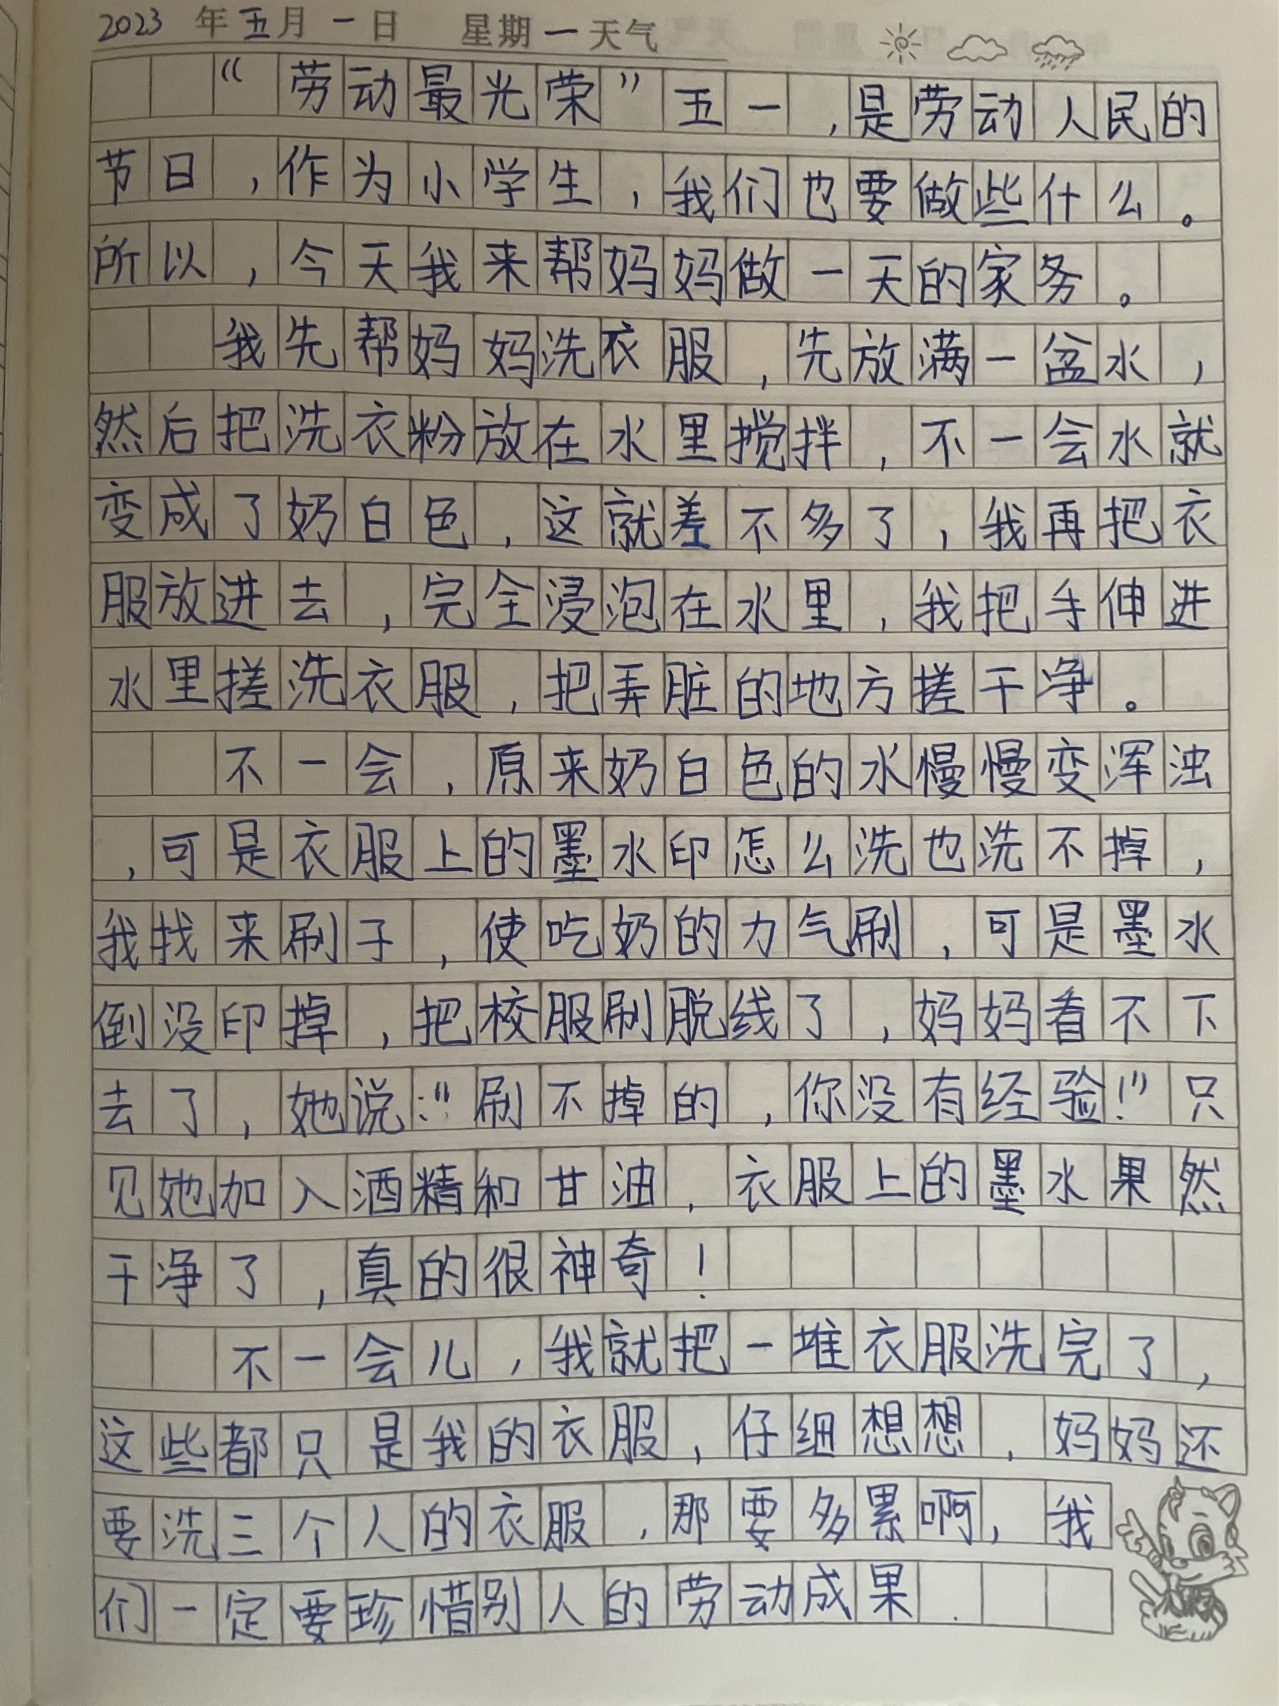 2023 年五月一日 星期一天气
“劳动最光荣”五一,是劳动人民的
节日,作为小学生,我们也要做些什么。
所以,今天我来帮妈妈做一天的家务。
我先帮妈妈洗衣服,先放满一盆水,
然后把洗衣粉放在水里搅拌,不一会水就
变成了奶白色,这就差不多了,我再把衣
服放进去,完全浸泡在水里,我把手伸进
水里搓洗衣服,把弄脏的地方搓干净。
不一会,原来奶白色的水慢慢变浑浊
,可是衣服上的墨水印怎么洗也洗不掉,
我找来刷子,使吃奶的力气刷,可是墨水
倒没印掉,把校服刷脱线了,妈妈看不下
去了,她说:“刷不掉的,你没有经验!”只
见她加入酒精和甘油,衣服上的墨水果然
干净了,真的很神奇!
不一会儿,我就把一堆衣服洗完了,
这些都只是我的衣服,仔细想想,妈妈还
要洗三个人的衣服,那要多累啊,我
们一定要珍惜别人的劳动成果.